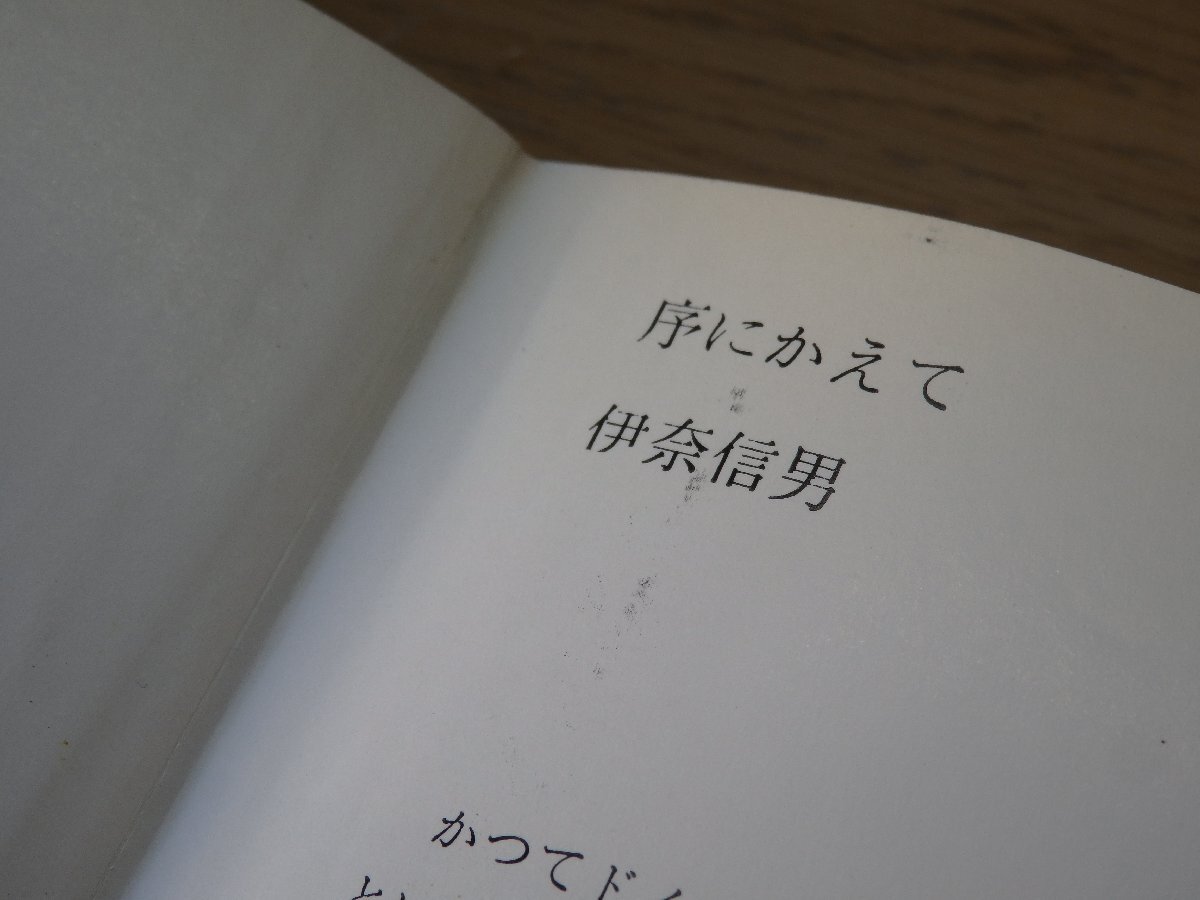 序にかえて
伊奈信男
かつてド